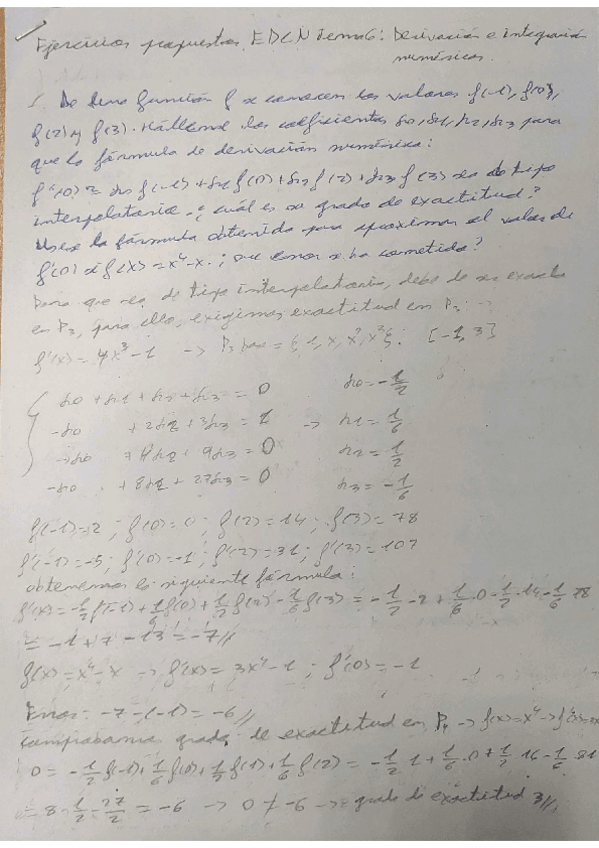 Ejercicios propuestos EDCN Tema 6: Derivación e integración
numéricas.
1. De una función f se conocen los valores f(-1), f(0),
f(2) y f(3). Hállense los coeficientes α0, α1, α2, α3 para
que la fórmula de derivación numérica:
f'(0) ≈ α0 f(-1) + α1 f(0) + α2 f(2) + α3 f(3) sea de tipo
interpolatorio. ¿cuál es su grado de exactitud?
Usese la fórmula obtenida para aproximar el valor de
f'(0) si f(x) = x⁴-x. ¿ error se ha cometido?
Para que sea de tipo interpolatorio, debe de ser exacta
en P3, para ello, exigimos exactitud en P3: →
f'(x) = 4x³-1 → P3 = {1, x, x², x³}. [-1, 3]
α0 + α1 + α2 + α3 = 0 α0 = -1/2
-α0 + 2α2 + 3α3 = 1 → α1 = 1/6
α0 + 4α2 + 9α3 = 0 α2 = 1/2
-α0 + 8α2 + 27α3 = 0 α3 = -1/6
f(-1) = 2 ; f(0) = 0 ; f(2) = 14 ; f(3) = 78
f'(-1) = -5 ; f'(0) = -1 ; f'(2) = 31 ; f'(3) = 107
obtenemos la siguiente fórmula:
f'(x) = -1/2 f(-1) + 1/6 f(0) + 1/2 f(2) - 1/6 f(3) = -1/2 · 2 + 1/6 · 0 + 1/2 · 14 - 1/6 78
= -1 + 7 - 13 = -7 //
f(x) = x⁴-x → f'(x) = 3x⁴-1 ; f'(0) = -1
Error: -7-(-1) = -6 //
comprobamos grado de exactitud en P4 → f(x) = x⁴ →
0 = -1/2 f(-1) + 1/6 f(0) + 1/2 f(1) + 1/6 f(2) = -1/2 1 + 1/6 · 0 + 1/2 · 16 - 1/6 81
= 8 - 1/2 - 27/2 = -6 → 0 ≠ -6 → grado de exactitud 3 //